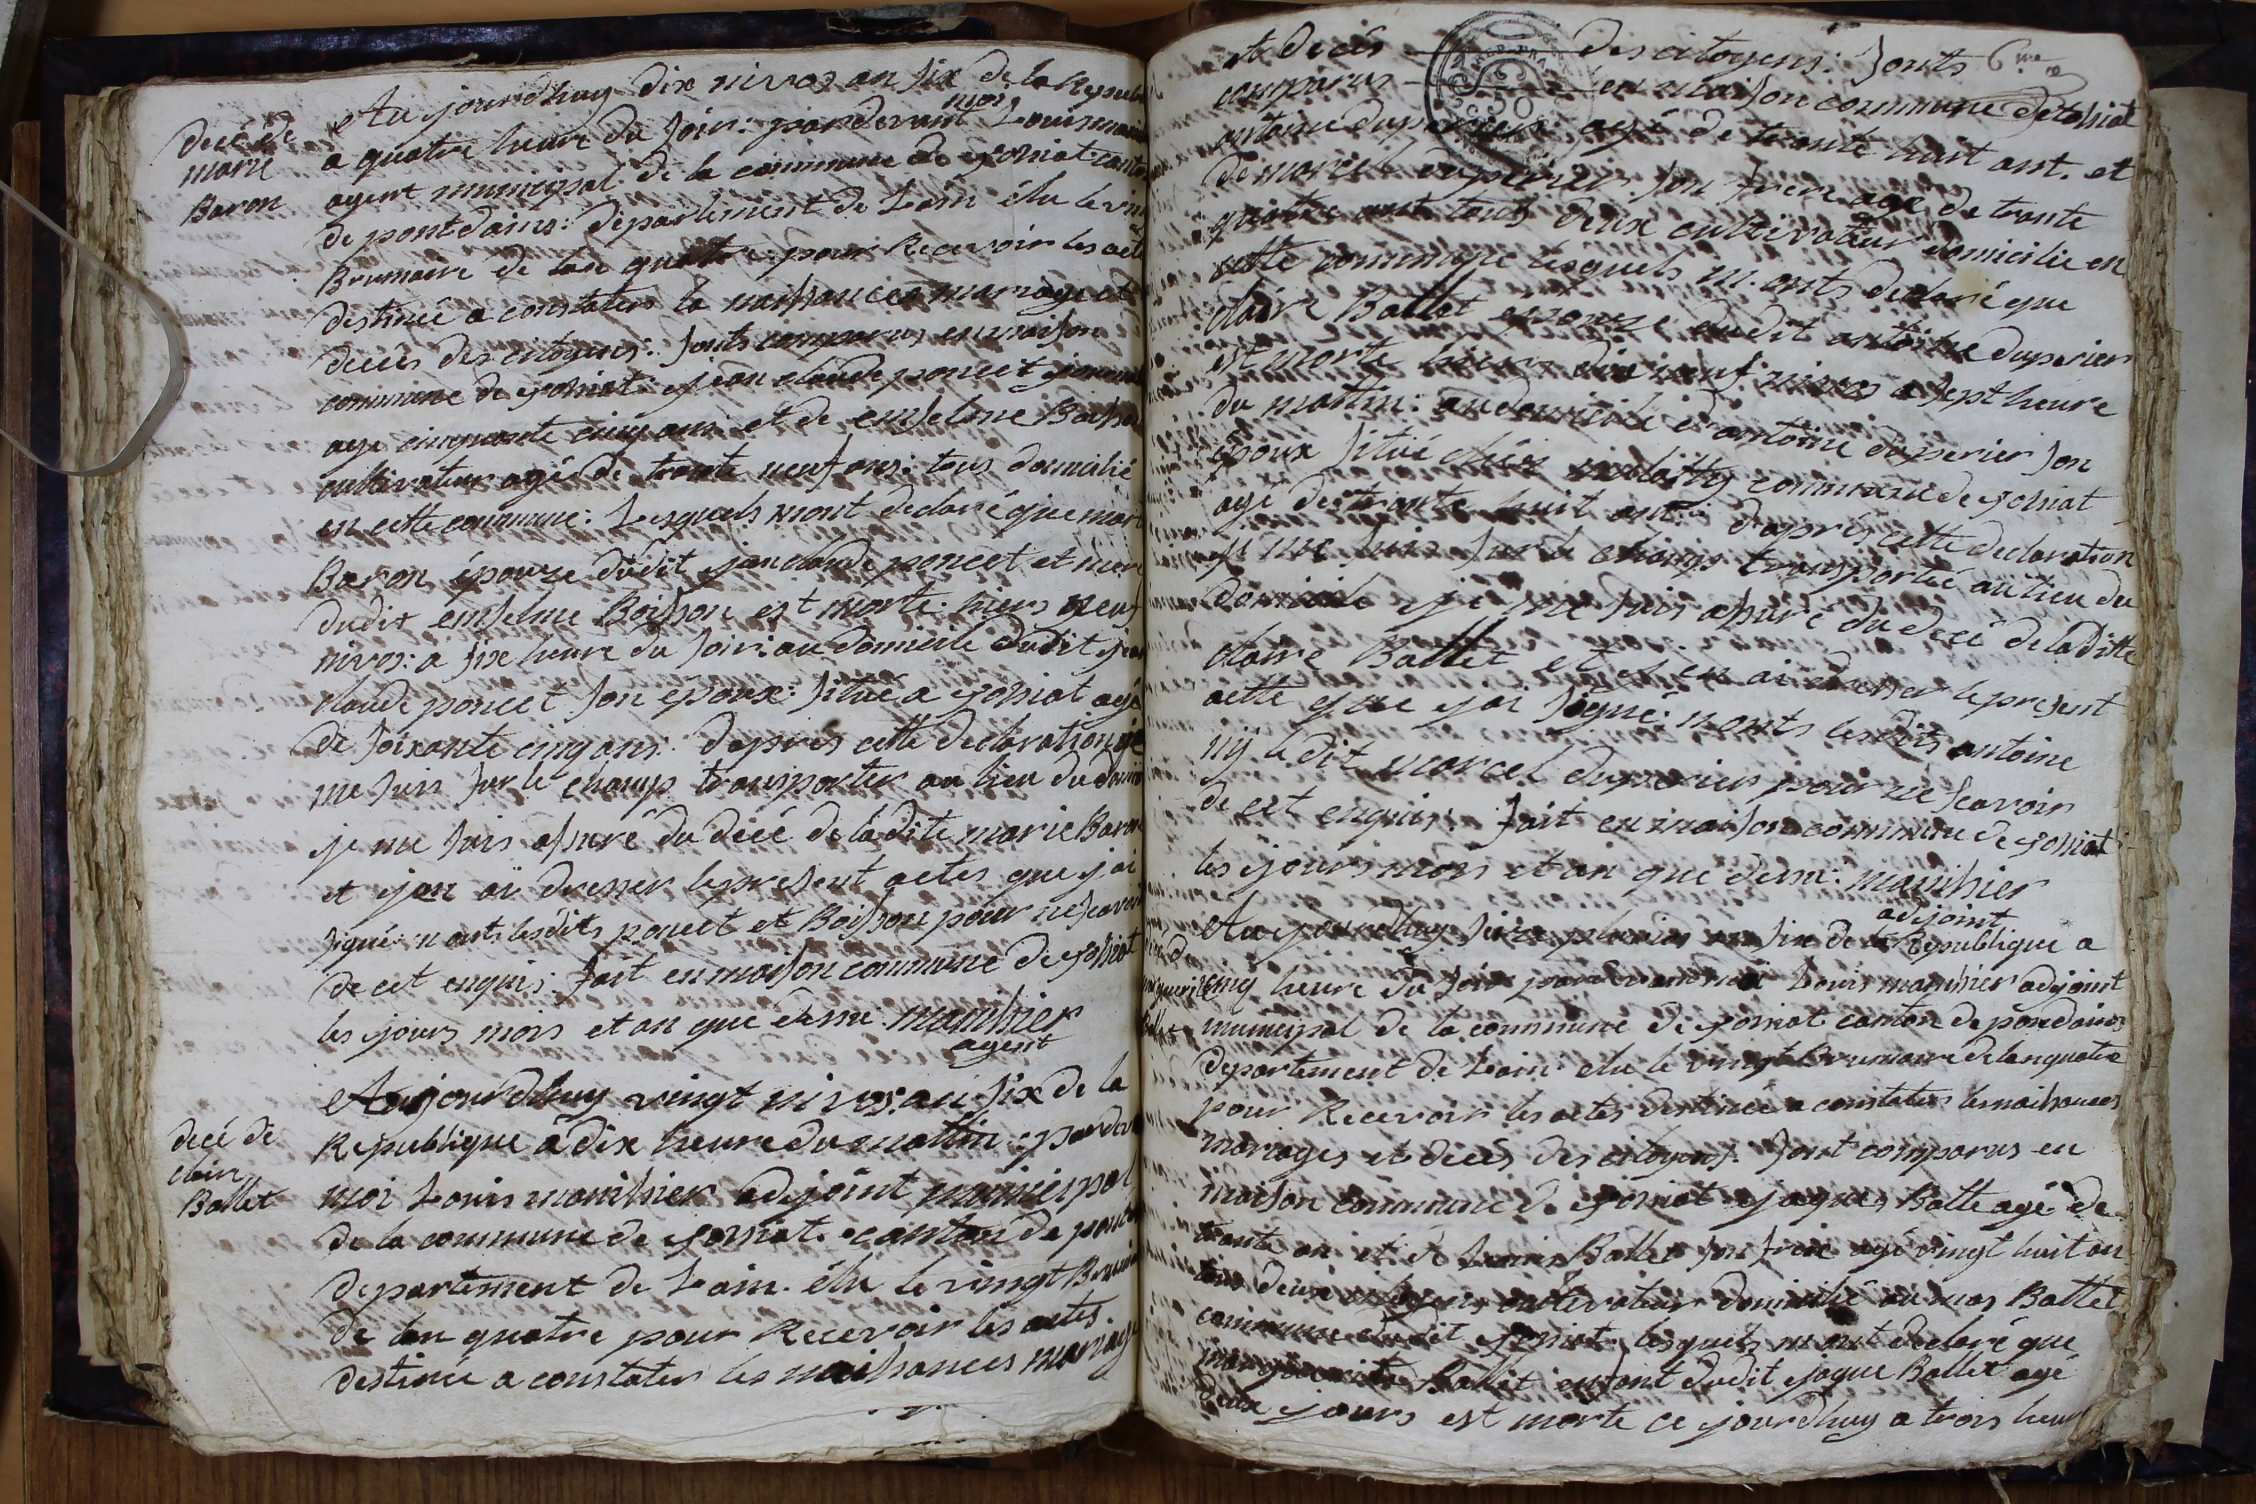 decé de
marie
Baron
Au jourdhuy dix nivos an six de la Republi
a quatre heure du soir: pardevant moi Louis manihier
agent municipal de la commune de
de pont dains: département de Lain élu le vin
Brumaire de lan quatre pour Recevoir les act
destinée a constater la naissances mariage et
décès des citoyens: sonts comparus en maison
commune de jean claude poncet
age cinquante cinq ans et de enselme Boisson
cultivateur agé de trante neuf ans: tous domicilié
en cette commune: Lesquels mont declaré que mari
Baron épouze dudit jean claude poncet et mere
dudit enselme Boisson est morte hiers neuf
nivos: a six heure du soir au domicile dudit jean
claude poncet son époux: situé a agé
de soixante cinq ans: depres cette declaration je
me suis sur le champ transporter au lieu du domi
je me suis assuré du décé de ladite marie Baron
et jan ai dresser le present actes que jai
signé: nonts lesdits poncet et Boisson pour ne scavoir
de cet enquis: fait en maison commune de
les jours mois et an que dessu manihier
agent
decé de
clair
Ballet
Aujourdhuy vingt nivos: an six de la
Republique à dix heure du mattin: pardev
moi Louis manihier adjoint municipal
de la commune de canton de pont
departement de Lain. élu le vingt Brum
de lan quatre pour Recevoir les actes
destinée a constater les naissances mariage
6me
et decès des citoyens: sonts
comparus en maison commune de
antoine duperier agé de trante huit ant. et
de marcel duperier son frere age de trante
quatre ant touts deux cultivateur domicilié en
cette commune lesquels m'onts declaré que
claire Ballet epouze dudit antoine duperier
est morte hiers dix neuf nivos a sept heure
du mattin: au domicile d'antoine duperier son
époux situé chés commune de
agé de trante huit ant: d'après cette declaration
je me suis sur le champs transportée au lieu du
domicile je me suis assuré du decé de la ditte
claire Ballet et j'en ai dresser le present
actte que jai signé: nonts lesdits antoine
nij le dit marcel duperier pour ne scavoir
de cet enquis: fait en maison commune de
les jours mois et an que dessu: manihier
adjoint
Au jourdhuy an six de la Republique a
cinq heure du soir pardevant moi Louis manihier adjoint
municipal de la commune de canton de pondains
departement de Lain élu le vingt Brumaire de lan quatre
pour Recevoir les actes destinée a constater les naissances
mariages et decès des citoyens. sont comparus en
maison commune de jaques Balle agé de
trante an et de Ballet son frere agé vingt huit an
tous deux citoyens cultivateur domicilié au mas Ballet
commune dudit lesquels m'ont declaré que
Ballet enfant dudit jaque Ballet agé
deux jours est morte ce jourdhuy a trois heure